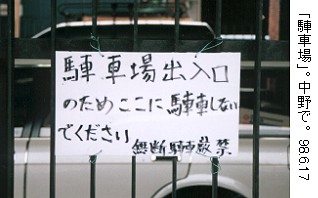 駐車場出入口
のためここに駐車しない
でください
無断駐車厳禁
「駐車場」。中野で。98.6.17